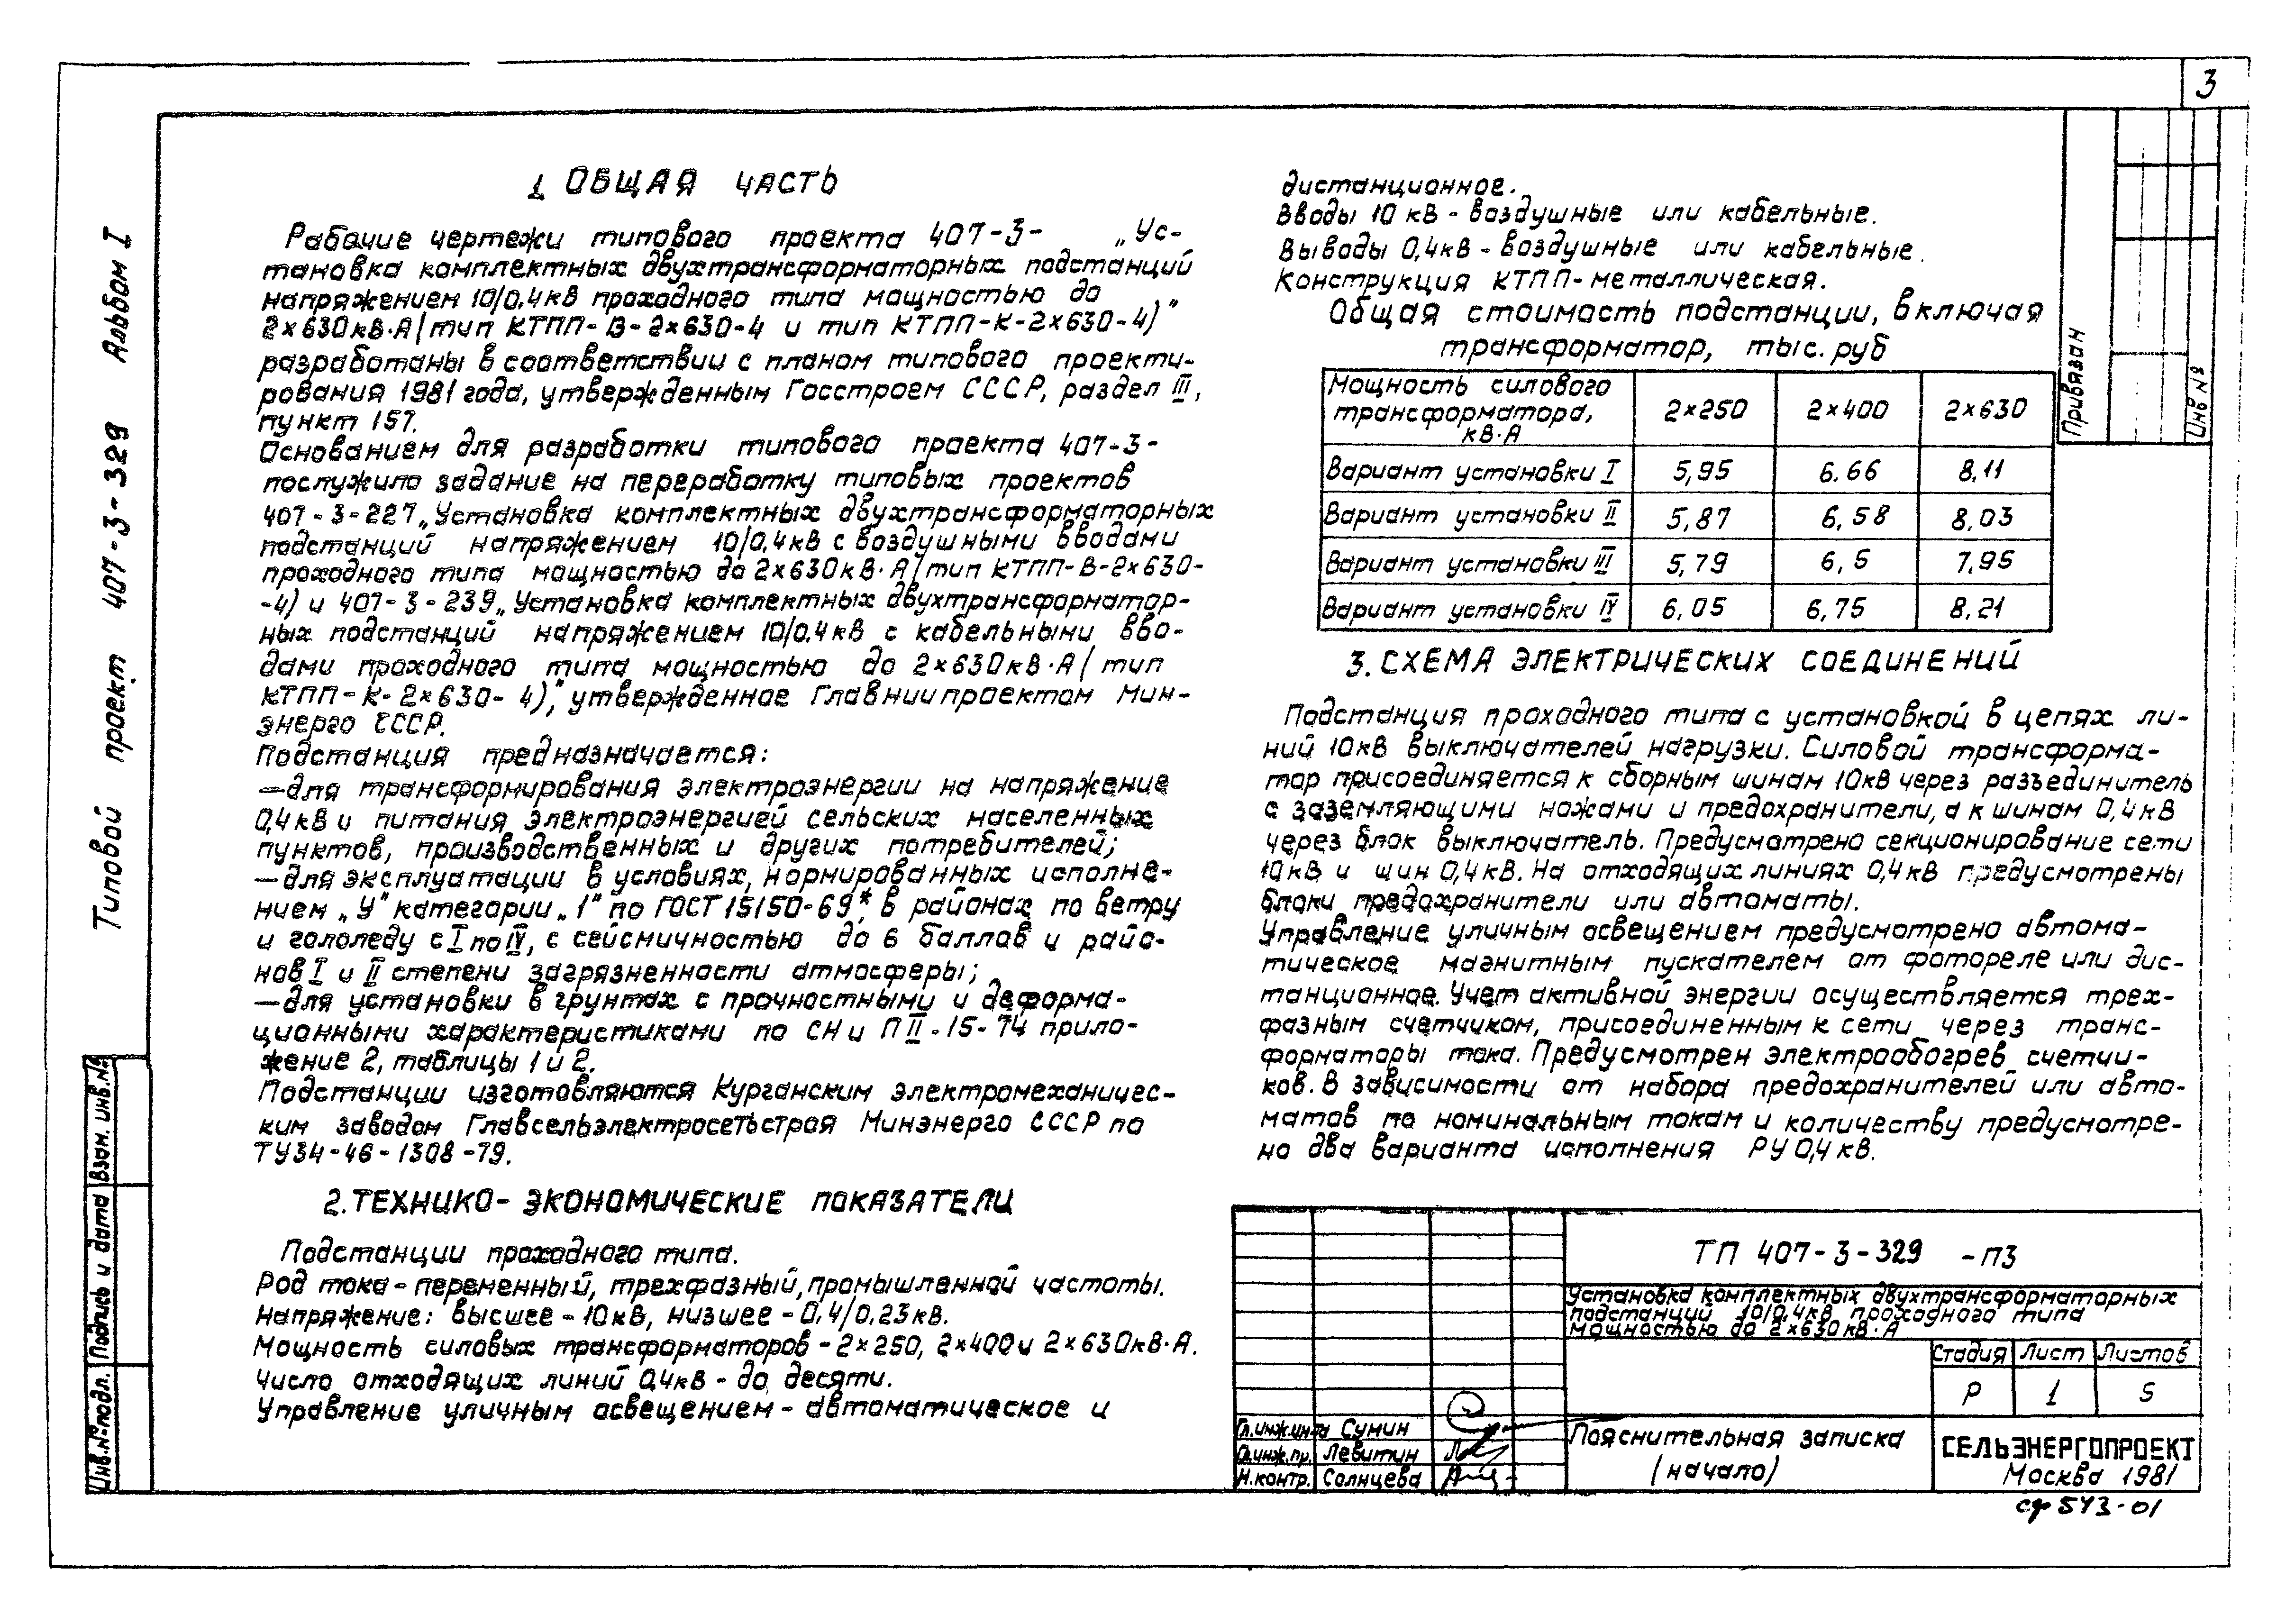 3
Типовой проект 407-3-329 Альбом I
1 ОБЩАЯ ЧАСТЬ
Рабочие чертежи типового проекта 407-3- „Ус-
тановка комплектных двухтрансформаторных подстанций
напряжением 10/0,4кВ проходного типа мощностью до
2×630кВ·А (тип КТПП-В-2×630-4 и тип КТПП-К-2×630-4)"
разработаны в соответствии с планом типового проекти-
рования 1981 года, утвержденным Госстроем СССР, раздел III,
пункт 157.
Основанием для разработки типового проекта 407-3-
послужило задание на переработку типовых проектов
407-3-227 „Установка комплектных двухтрансформаторных
подстанций напряжением 10/0,4кВ с воздушными вводами
проходного типа мощностью до 2×630кВ·А (тип КТПП-В-2×630-
-4) и 407-3-239 „Установка комплектных двухтрансформатор-
ных подстанций напряжением 10/0,4кВ с кабельными вво-
дами проходного типа мощностью до 2×630кВ·А (тип
КТПП-К-2×630-4)", утвержденное Главниипроектом Мин-
энерго СССР.
Подстанция предназначается:
—для трансформирования электроэнергии на напряжение
0,4кВ и питания электроэнергией сельских населенных
пунктов, производственных и других потребителей;
—для эксплуатации в условиях, нормированных исполне-
нием „У" категории „1" по ГОСТ 15150-69*, в районах по ветру
и гололеду с I по IV, с сейсмичностью до 6 баллов и райо-
нов I и II степени загрязненности атмосферы;
—для установки в грунтах с прочностными и деформа-
ционными характеристиками по СН и П II-15-74 прило-
жение 2, таблицы 1 и 2.
Подстанции изготовляются Курганским электромеханичес-
ким заводом Главсельэлектросетьстроя Минэнерго СССР по
ТУ34-46-1308-79.
2. ТЕХНИКО-ЭКОНОМИЧЕСКИЕ ПОКАЗАТЕЛИ
Подстанции проходного типа.
Род тока - переменный, трехфазный, промышленной частоты.
Напряжение: высшее - 10кВ, низшее - 0,4/0,23кВ.
Мощность силовых трансформаторов - 2×250, 2×400 и 2×630кВ·А.
Число отходящих линий 0,4кВ - до десяти.
Управление уличным освещением - автоматическое и
дистанционное.
Вводы 10 кВ - воздушные или кабельные.
Выводы 0,4кВ - воздушные или кабельные.
Конструкция КТПП - металлическая.
Общая стоимость подстанции, включая
трансформатор, тыс. руб
Мощность силового
трансформатора,
кВ·А
2×250 2×400 2×630
Вариант установки I 5,95 6.66 8,11
Вариант установки II 5,87 6,58 8,03
Вариант установки III 5,79 6,5 7,95
Вариант установки IV 6,05 6,75 8,21
3. СХЕМА ЭЛЕКТРИЧЕСКИХ СОЕДИНЕНИЙ
Подстанция проходного типа с установкой в цепях ли-
ний 10кВ выключателей нагрузки. Силовой трансформа-
тор присоединяется к сборным шинам 10кВ через разъединитель
с заземляющими ножами и предохранители, а к шинам 0,4кВ
через блок выключатель. Предусмотрено секционирование сети
10кВ и шин 0,4кВ. На отходящих линиях 0,4кВ предусмотрены
блоки предохранители или автоматы.
Управление уличным освещением предусмотрено автома-
тическое магнитным пускателем от фотореле или дис-
танционное. Учет активной энергии осуществляется трех-
фазным счетчиком, присоединенным к сети через транс-
форматоры тока. Предусмотрен электрообогрев счетчи-
ков. В зависимости от набора предохранителей или авто-
матов по номинальным токам и количеству предусмотре-
но два варианта исполнения РУ 0,4 кВ.
Привязан
Инв №
Взам. инв.№
Подпись и дата
Инв.№подл.
ТП 407-3-329 -ПЗ
Установка комплектных двухтрансформаторных
подстанций 10/0,4кВ проходного типа
мощностью до 2×630кВ·А
Стадия Лист Листов
Р 1 5
Гл.инж.ин-та Сумин
Гл.инж.пр. Левитин
Н.контр. Солнцева
Пояснительная записка
(начало)
СЕЛЬЭНЕРГОПРОЕКТ
Москва 1981
сф 543-01